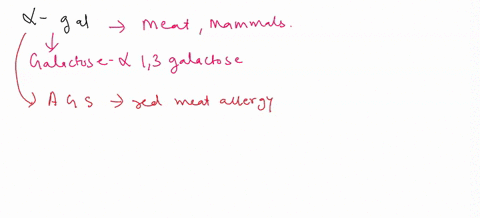 α- gal → meat, mammals.
Galactose-α 1,3 galactose
→ A G S → red meat allergy